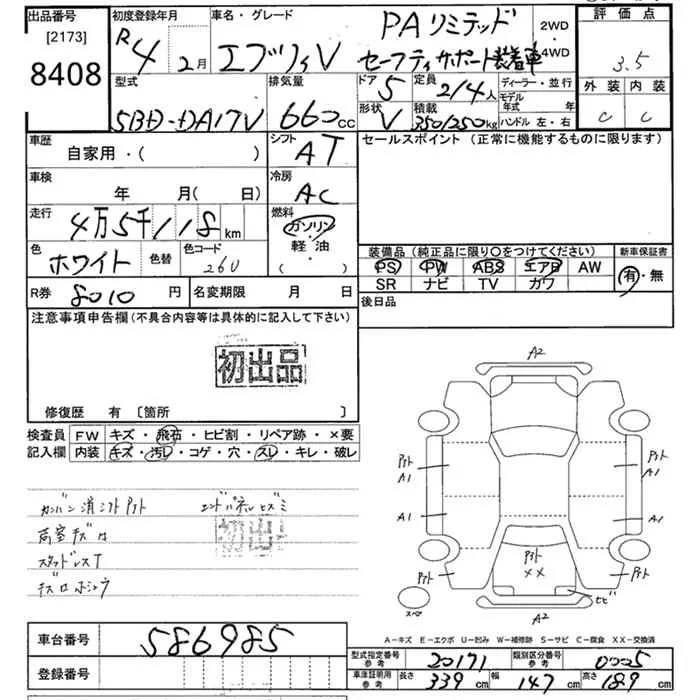 出品番号
[2173]
8408
初度登録年月
R4 2月
車名・グレード
エブリィV
PAリミテッド
セーフティサポート装着車
2WD
・
4WD
評価点
3.5
外装 内装
C C
型式
5BD-DA17V
排気量
660cc
ドア
5
定員
2/4人
ディーラー・並行
モデル年式 年
ハンドル 左・右
形状
V
積載
350/250kg
車歴
自家用・( )
シフト
AT
セールスポイント (正常に機能するものに限ります)
車検
年 月( 日)
冷房
AC
走行
4万5千118km
燃料
ガソリン
軽・油
( ・ )
色
ホワイト
色替
色コード
26U
装備品 (純正品に限り○をつけてください)
PS PW ABS エアB AW
SR ナビ TV カワ
新車保証書
有・無
R券 8010 円
名変期限 月 日
後日品
注意事項申告欄(不具合内容等は具体的に記入して下さい)
初出品
修復歴 有 [箇所 ]
検査員
記入欄
FW キズ・飛石・ヒビ割・リペア跡・×要
内装 キズ・汚レ・コゲ・穴・スレ・キレ・破レ
カンバン消シフトアト
エンドパネルヒズミ
荷室キズロ
初出品
スタッドレスT
キズロホシュウ
A2
アト
A1
アト
A1
A1
A1
アト
××
アト
アト
ヒビ
スペア
A2
A-キズ E-エクボ U-凹み W-補修跡 S-サビ C-腐食 XX-交換済
車台番号
586985
登録番号
型式指定番号
参考
20171
類別区分番号
参考
0005
車庫証明用
参考
長さ 339cm
幅 147cm
高さ 189cm